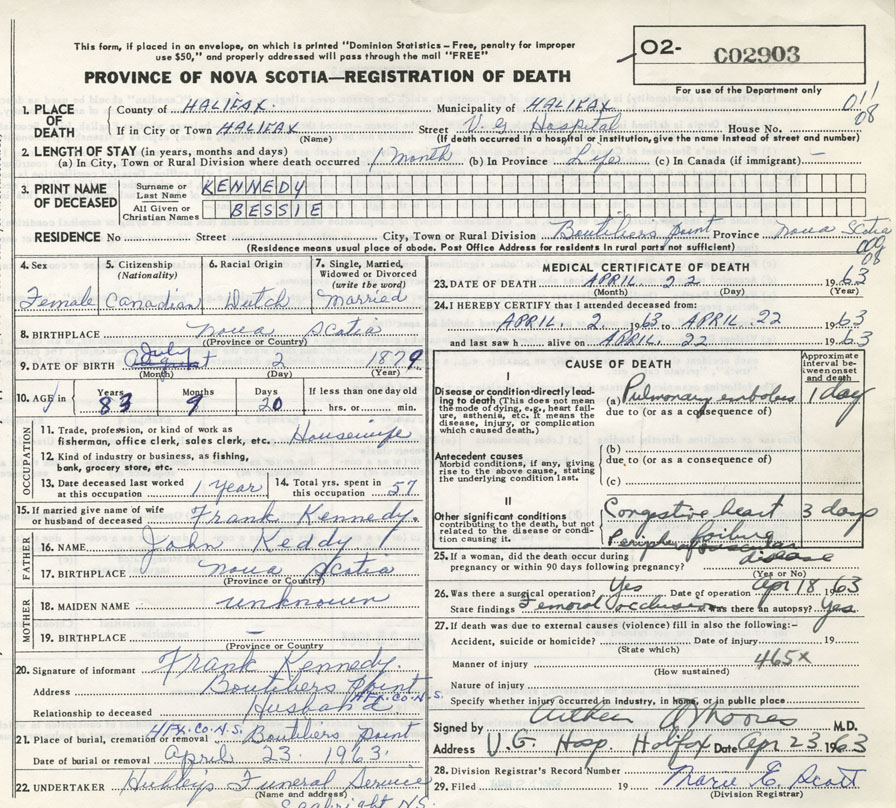 This form, if placed in an envelope, on which is printed "Dominion Statistics – Free, penalty for improper
use $50," and properly addressed will pass through the mail "FREE"
PROVINCE OF NOVA SCOTIA—REGISTRATION OF DEATH
O2- C02903
For use of the Department only
011
08
1. PLACE OF DEATH
County of HALIFAX. Municipality of HALIFAX
If in City or Town HALIFAX Street V. G Hospital House No.
(Name) (If death occurred in a hospital or institution, give the name instead of street and number)
2. LENGTH OF STAY (in years, months and days)
(a) In City, Town or Rural Division where death occurred 1 month (b) In Province Life (c) In Canada (if immigrant) –
3. PRINT NAME OF DECEASED
Surname or Last Name KENNEDY
All Given or Christian Names BESSIE
RESIDENCE No Street City, Town or Rural Division Boutiliers point Province Nova Scotia
(Residence means usual place of abode. Post Office Address for residents in rural parts not sufficient)
000
08
4. Sex Female
5. Citizenship (Nationality) Canadian
6. Racial Origin Dutch
7. Single, Married, Widowed or Divorced (write the word) Married
8. BIRTHPLACE Nova Scotia
(Province or Country)
9. DATE OF BIRTH July 2 1879
(Month) (Day) (Year)
10. AGE in Years 83 Months 9 Days 20 If less than one day old hrs. or min.
OCCUPATION
11. Trade, profession, or kind of work as fisherman, office clerk, sales clerk, etc. Housewife
12. Kind of industry or business, as fishing, bank, grocery store, etc.
13. Date deceased last worked at this occupation 1 year
14. Total yrs. spent in this occupation 57
15. If married give name of wife or husband of deceased Frank Kennedy.
FATHER
16. NAME John Keddy
17. BIRTHPLACE Nova Scotia
(Province or Country)
MOTHER
18. MAIDEN NAME unknown
19. BIRTHPLACE –
(Province or Country)
20. Signature of informant Frank Kennedy.
Address Boutiliers Point
HFX. CO. N.S.
Relationship to deceased Husband
21. Place of burial, cremation or removal HFX. CO. N.S. Boutiliers point
Date of burial or removal April 23 1963
22. UNDERTAKER Hubley's Funeral Service
(Name and address)
Seabright N.S.
MEDICAL CERTIFICATE OF DEATH
23. DATE OF DEATH APRIL 22 1963
(Month) (Day) (Year)
24. I HEREBY CERTIFY that I attended deceased from:
APRIL. 2 1963 to APRIL. 22 1963
and last saw h alive on APRIL. 22 1963
CAUSE OF DEATH
Approximate interval between onset and death
I
Disease or condition directly leading to death (This does not mean the mode of dying, e.g., heart failure, asthenia, etc. It means the disease, injury, or complication which caused death.)
(a) Pulmonary embolus 1 day
due to (or as a consequence of)
Antecedent causes
Morbid conditions, if any, giving rise to the above cause, stating the underlying condition last.
(b)
due to (or as a consequence of)
(c)
II
Other significant conditions
contributing to the death, but not related to the disease or condition causing it.
Congestive heart failure 3 days
disease
25. If a woman, did the death occur during pregnancy or within 90 days following pregnancy?
(Yes or No)
26. Was there a surgical operation? Yes Date of operation Apr 18 1963
State findings Femoral occlusion Was there an autopsy? Yes
27. If death was due to external causes (violence) fill in also the following:–
Accident, suicide or homicide? Date of injury 19
(State which)
Manner of injury 465X
(How sustained)
Nature of injury
Specify whether injury occurred in industry, in home, or in public place
Signed by M.D.
Address V.G. Hosp. Halifax Date Apr 23 1963
28. Division Registrar's Record Number
29. Filed 19 Marie E. Scott
(Division Registrar)